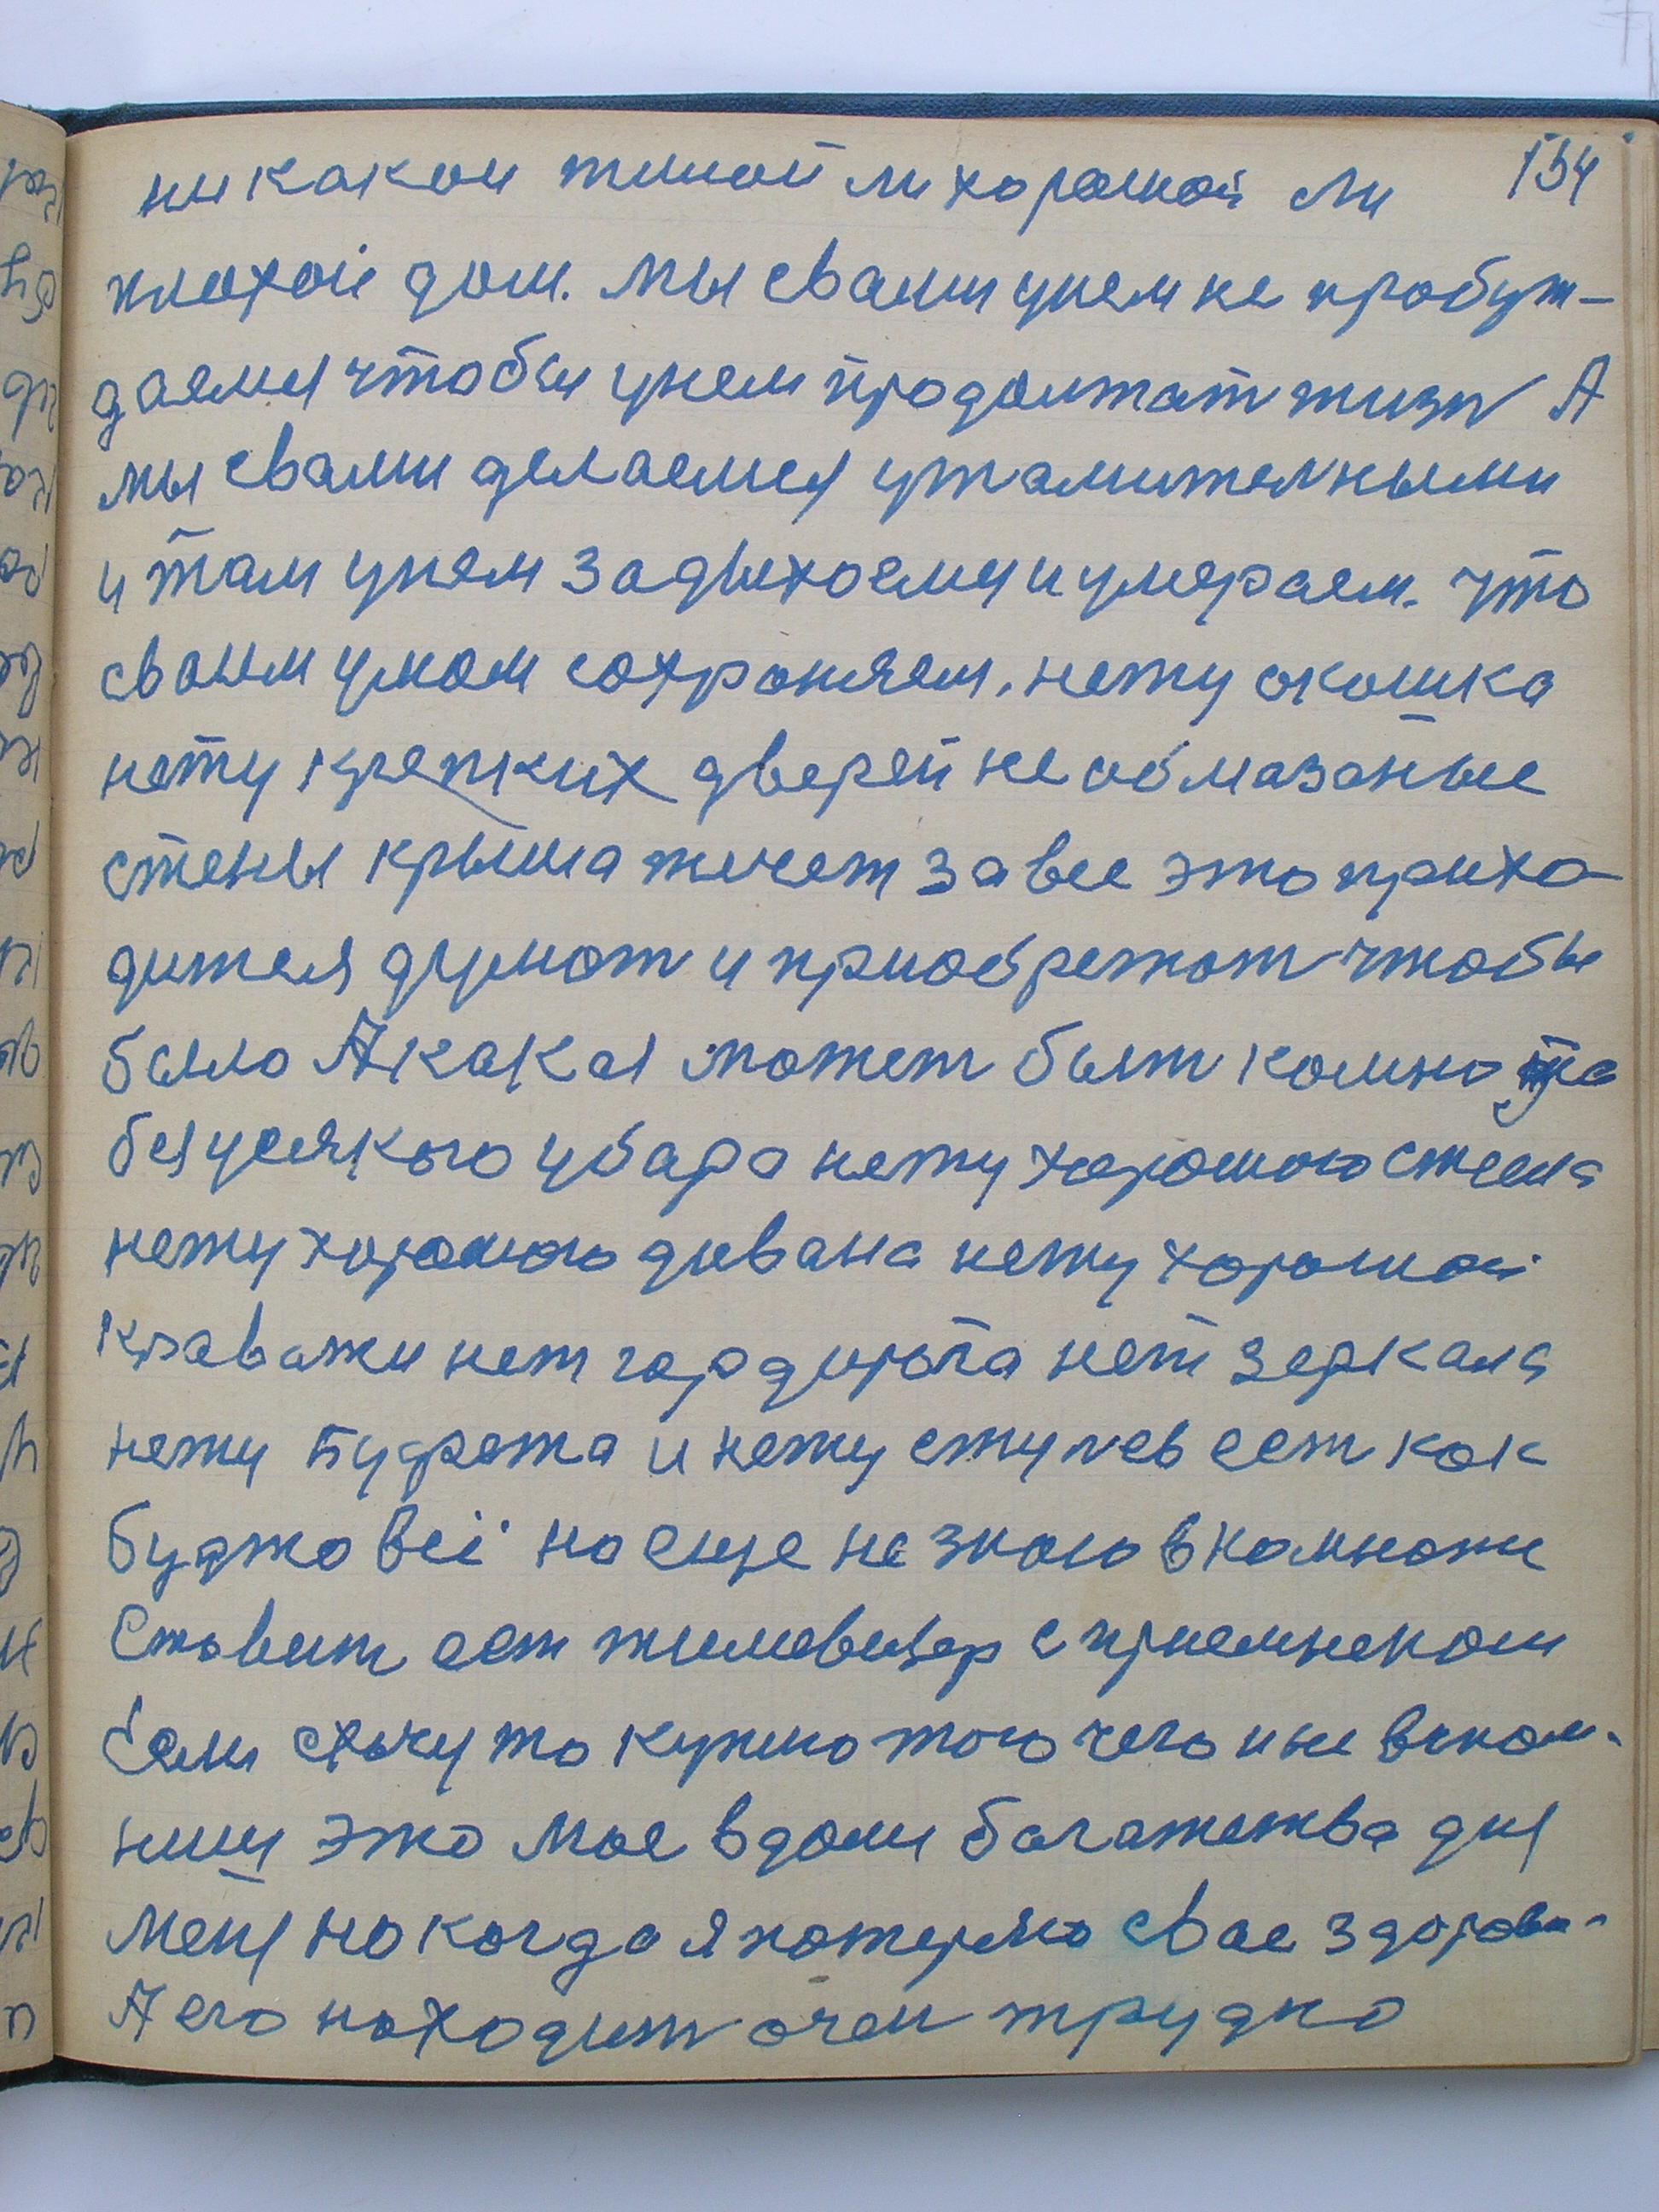 154
ни какой тиной ли хорошой ли
плохой дом. мы свами унем не пробуж-
даемся чтобы унем продолжат жизн А
мы свами делаемся утамителными
и там унем задыхаемся и умераем. что
своим умом сохраняем, нету окошка
нету крепких дверей не обмазаные
стены крыша течет за все это прихо-
дится думат и приобретат чтобы
было А какая может быт комната
без усякого убара нету хорошого стола
нету хорошого дивана нету хорошой
кравати нет гардироба нет зеркала
нету Буфета и нету стулев ест как
будто всі но еще не знаю в комнати
Ставит ест тилевизер с приемнеком
Если схочу то куплю того чего и не вспом-
ниш это мое в доми багатства для
меня но когда я потеряю свае здорови-
А его находит очен трудно